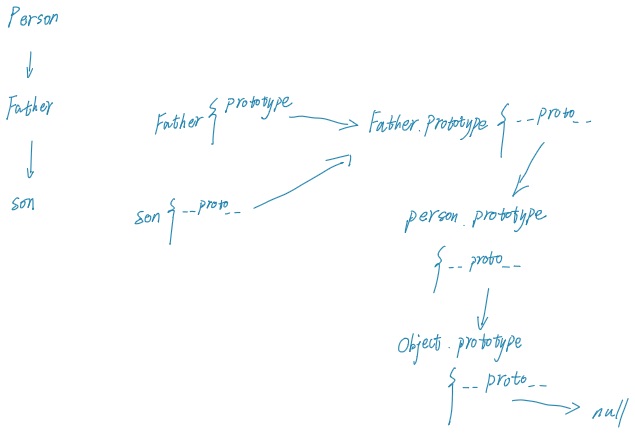 Person
Father
son
Father { prototype
son { __proto__
Father.prototype { __proto__
person.prototype
{ __proto__
Object.prototype
{ __proto__
null